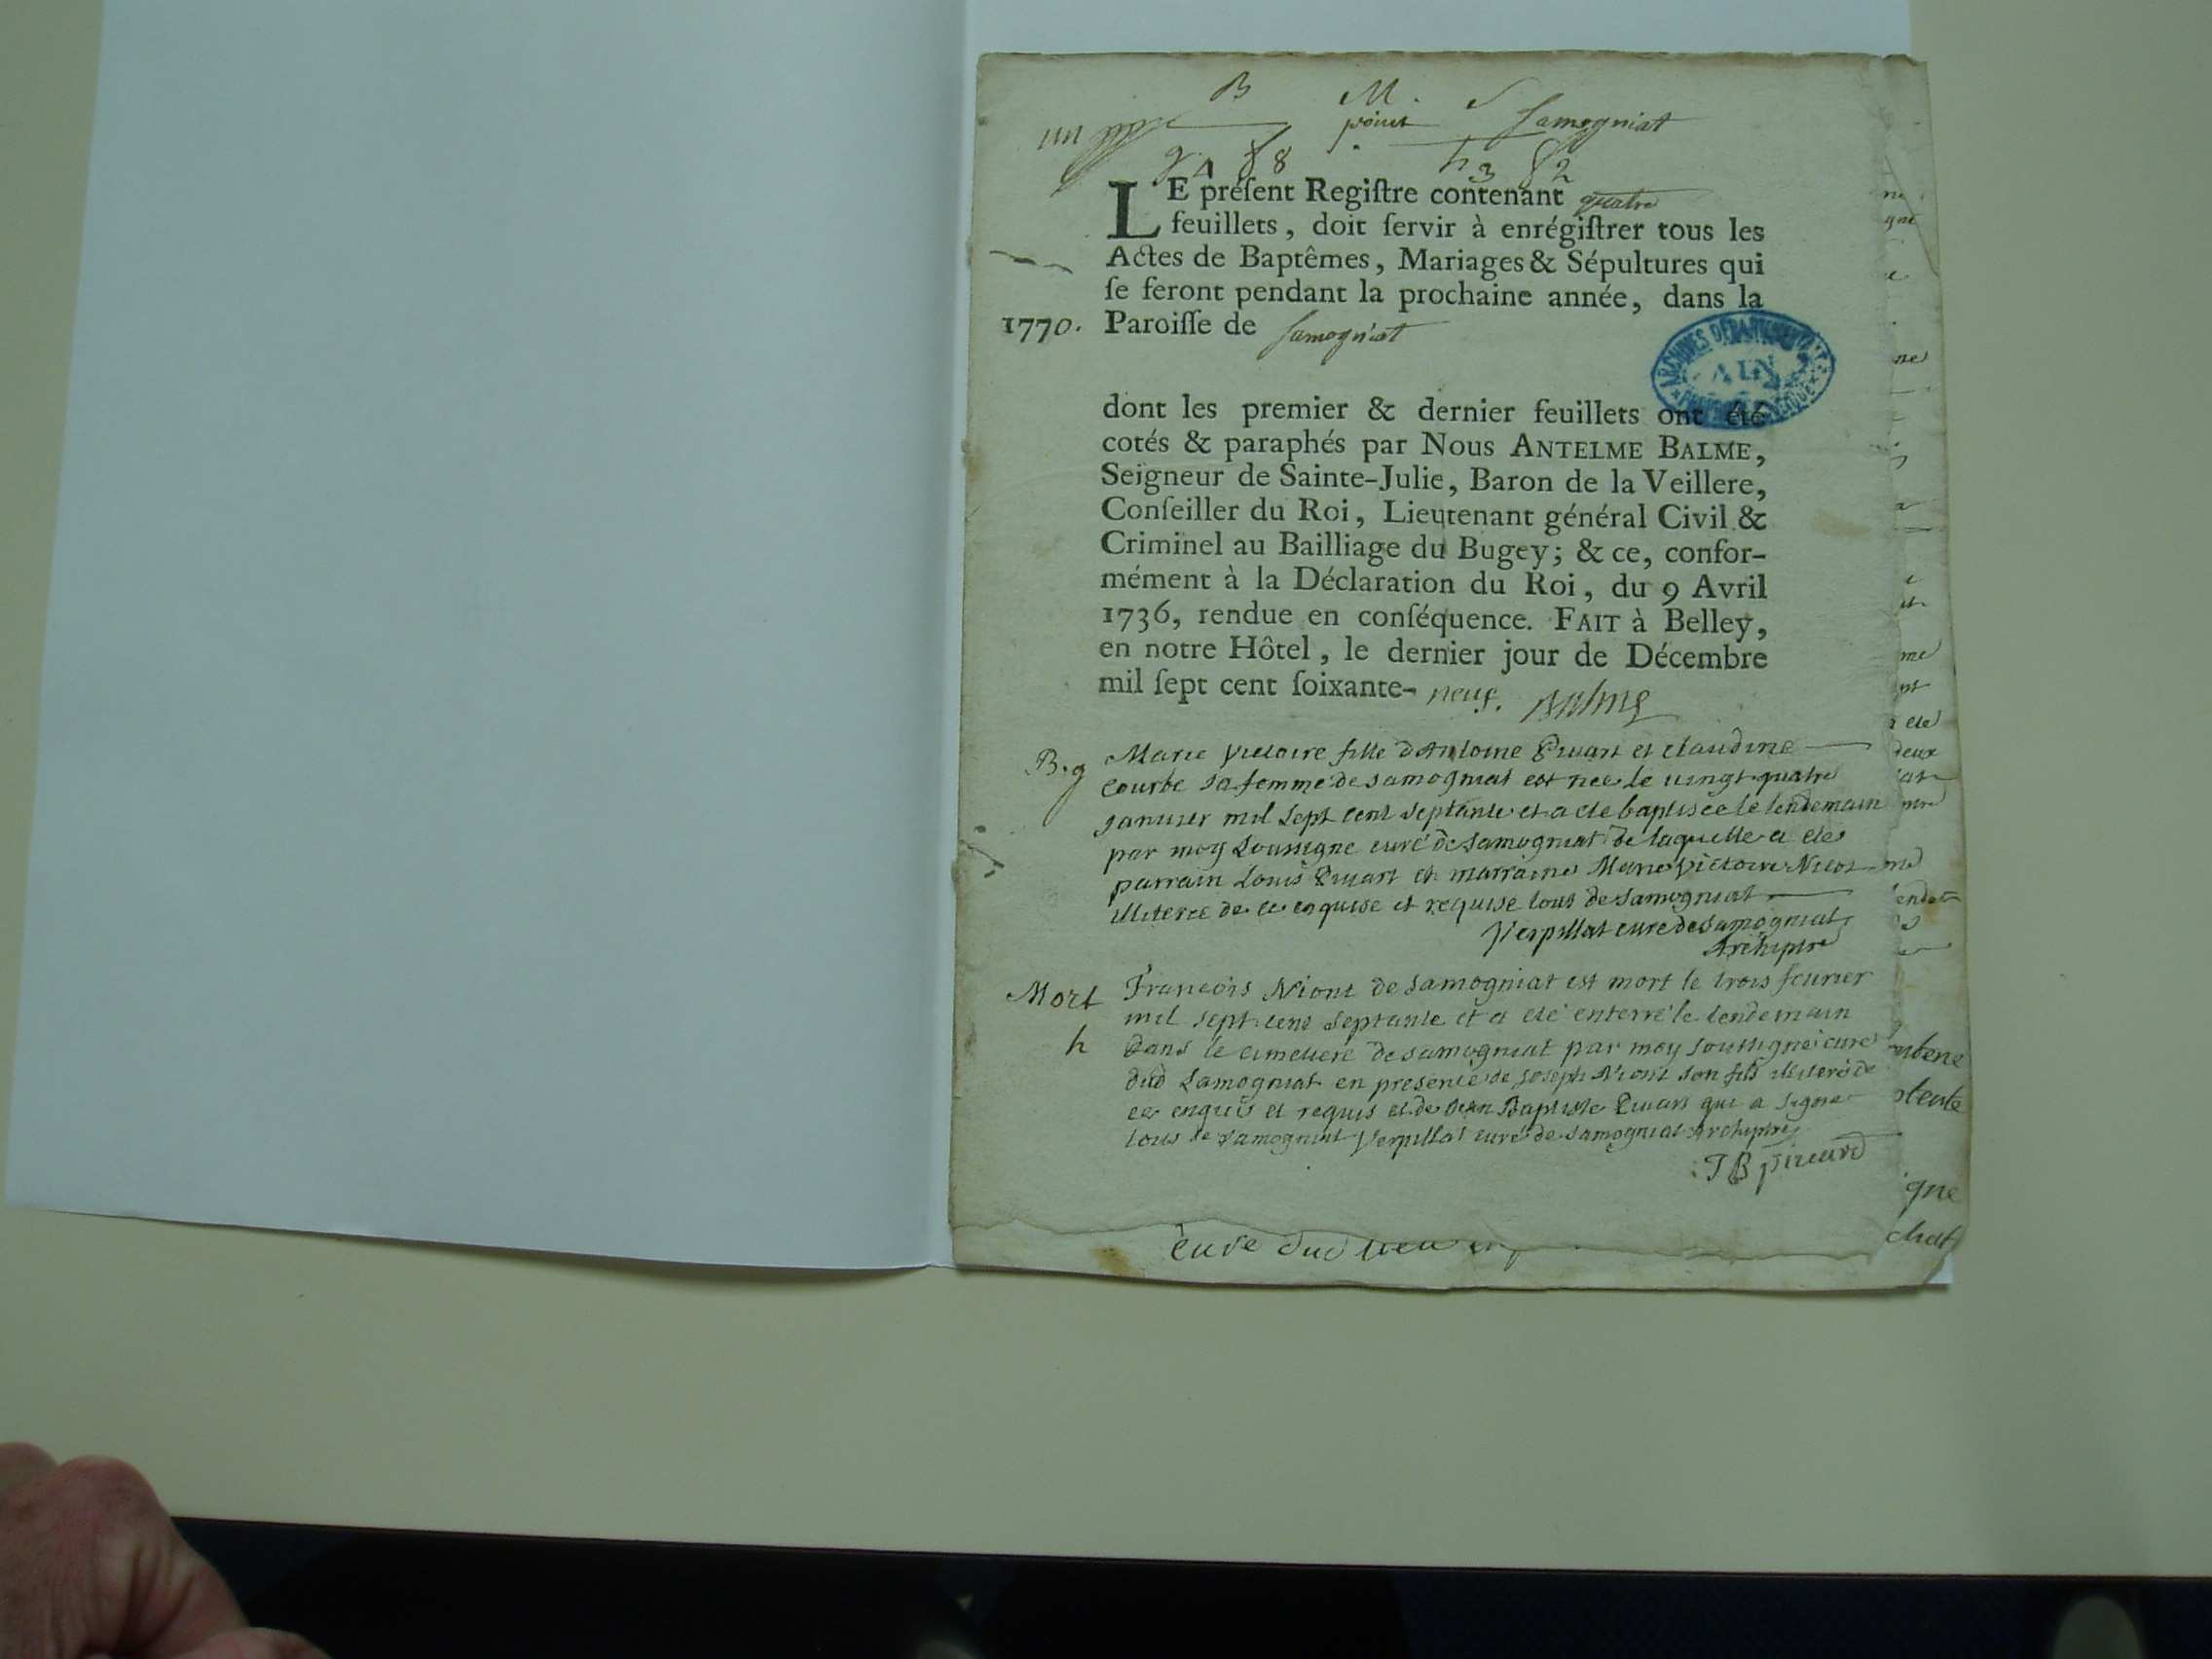 B M. S
un point Samogniat
g 4 f 8 h 3 f 2
LE préſent Regiſtre contenant quatre
feuillets, doit ſervir à enrégiſtrer tous les
Actes de Baptêmes, Mariages & Sépultures qui
ſe feront pendant la prochaine année, dans la
1770. Paroiſſe de Samogniat
ARCHIVES DÉPARTEMENTALES AIN
dont les premier & dernier feuillets ont été
cotés & paraphés par Nous ANTELME BALME,
Seigneur de Sainte-Julie, Baron de la Veillere,
Conſeiller du Roi, Lieutenant général Civil &
Criminel au Bailliage du Bugey; & ce, confor-
mément à la Déclaration du Roi, du 9 Avril
1736, rendue en conſéquence. FAIT à Belley,
en notre Hôtel, le dernier jour de Décembre
mil ſept cent ſoixante- neuf. Balme
B. g Marie Victoire fille d'Antoine et claudine
courbe sa femme de samogniat est née le vingt quatre
janvier mil sept cent septante et a ete baptisée le lendemain
par moy soussigne curé de samogniat de laquelle a ete
parrain Louis et marraine Marie Victoire
illiteree de ce enquise et requise tous de samogniat
Verpillat curé de samogniat
Archiptre
Mort François Niont de samogniat est mort le trois fevrier
mil sept cent septante et a eté enterré le lendemain
h dans le cimetiere de samogniat par moy soussigné curé
dud samogniat en presence de joseph Niont son fils illiteré de
ce enquis et requis et de Jean Baptiste qui a signé
tous de samogniat Verpillat curé de samogniat Archiptre
J B
curé dud lieu